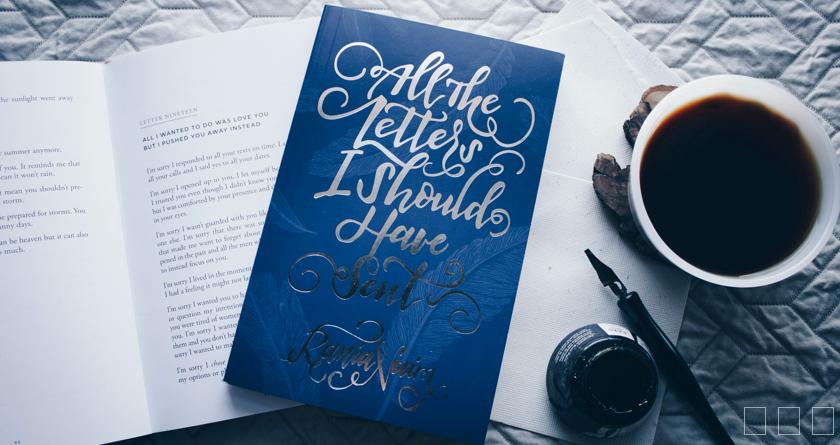 he sunlight went away
summer anymore.
f you. It reminds me that
ean it won't rain.
mean you shouldn't pre-
storm.
be prepared for storms. You
unny days.
an be heaven but it can also
s much.
64
LETTER NINETEEN
ALL I WANTED TO DO WAS LOVE YOU
BUT I PUSHED YOU AWAY INSTEAD
I'm sorry I responded to all your texts on time. I a
all your calls and I said yes to all your dates.
I'm sorry I opened up to you, I let myself be
I trusted you even though I didn't know yo
but I was comforted by your presence and th
in your eyes.
I'm sorry I wasn't guarded with you lik
one else. I'm sorry that there was so
that made me want to forget about
pened in the past and all the men w
to instead focus on you.
I'm sorry I lived in the moment
I had a feeling it might not las
I'm sorry I wanted you to h
or question my intention
you were tired of women
them and you don't ha
sorry I wanted to ma
I'm sorry I chose
my options or p
All the
Letters
I Should
Have
Sent
Rania Naim